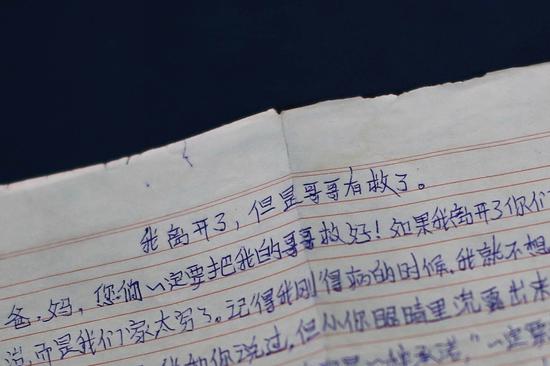 我离开了，但是哥哥有救了。
爸、妈，您们一定要把我的哥哥救好！如果我离开了你们
说，而是我们家太穷了。记得我刚得病的时候，我就不想
你说过，但从你眼睛里流露出来
一定要